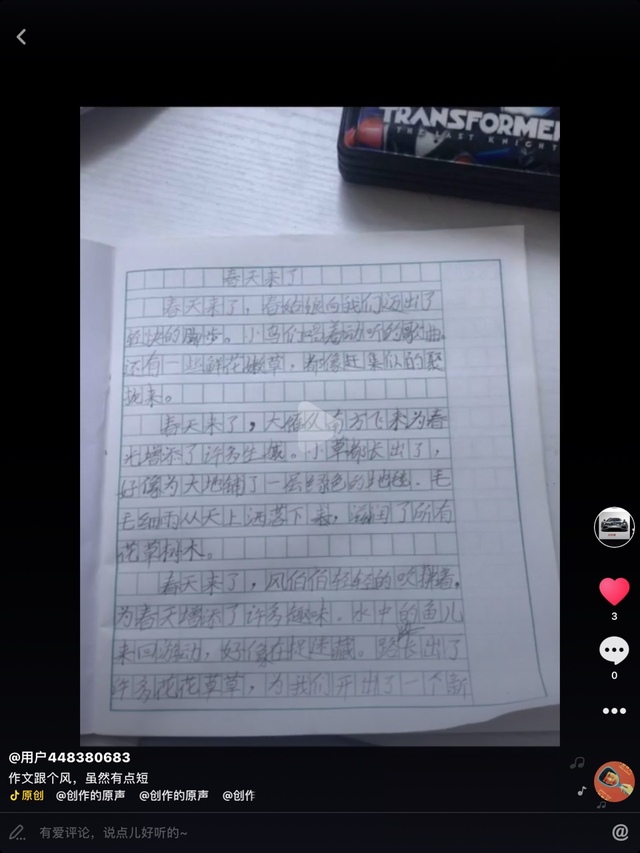 TRANSFORMER
THE LAST KNIGHT
春天来了
春天来了，春姑娘向我们迈出了
轻快的脚步。小鸟们唱着动听的歌曲。
还有一些鲜花嫩草，都像赶集似的聚
拢来。
春天来了，大雁从南方飞来为春
光增添了许多生机。小草都长出了，
好像为大地铺了一层绿色的地毯。毛
毛细雨从天上洒落下来，滋润了所有
花草树木。
春天来了，风伯伯轻轻的吹拂着，
为春天增添了许多趣味。水中的鱼儿
来回游动，好像在捉迷藏。路长出了
许多花花草草，为我们开出了一个新
3
0
@用户448380683
作文跟个风，虽然有点短
原创 @创作的原声 @创作的原声 @创作
有爱评论，说点儿好听的~
@